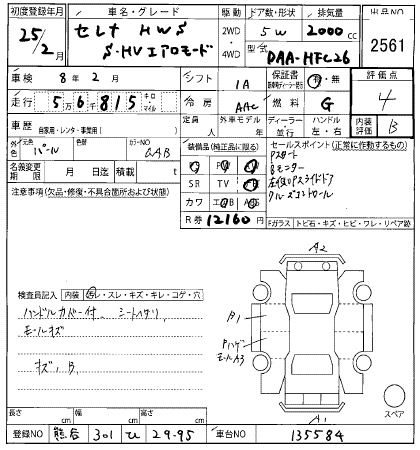 初度登録年月 車名・グレード 駆動 ドア数・形状 排気量 出品NO
25/2月 セレナ HWS 2WD 4WD 5 W 2000cc 2561
S-HV エアロモード 型式 DAA-HFC26
車検 8年 2月 シフト IA 保証書 有・無 評価点
走行 5万6千815 キロ・マイル 冷房 AAC 燃料 G 4
車歴 自家用・レンタ・事業用( ) 定員 人 外車モデル 年 ディーラー 並行 ハンドル 左・右 内装評価 B
外色 元色 パール 色替 カラーNO QAB
装備品(純正品に限る) セールスポイント(正常に作動するもの)
名義変更期限 月 日迄 積載 t
SR TV
Pスタート
Bモニター
左側Pスライドドア
クルーズコントロール
注意事項(欠品・修復・不具合箇所および状態)
カワ
R券 12160円
Fガラス トビ石・キズ・ヒビ・ワレ・リペア跡
A2
検査員記入 内装 汚レ・スレ・キズ・キレ・コゲ・穴
ハンドルカバー付 シートヨゴリ
モールキズ
キズ、B
B1
Pハゲ
モールA3
A1
スペア
長さ cm 幅 cm 高さ cm
登録NO 熊谷 301 ひ 29-95 車台NO 135584